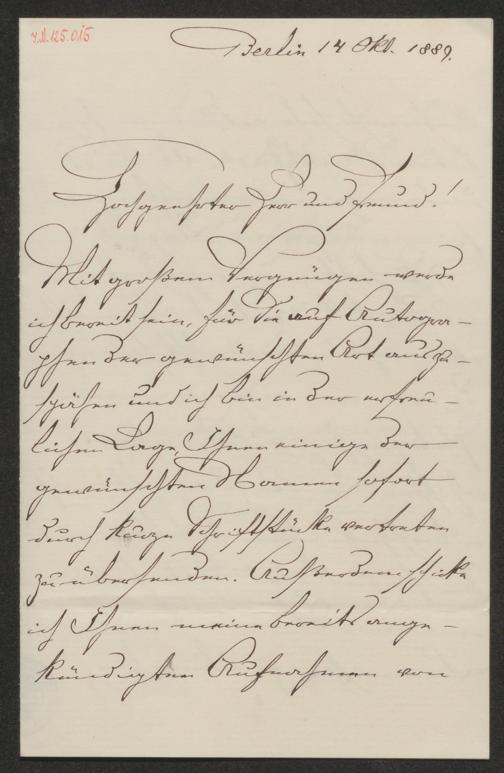 I.N. 125.015
Berlin 14 Okt. 1889.
Hochgeehrter Herr und Freund!
Mit großem Vergnügen werde
ich bereit sein, für Sie auf Autogra-
phen der gewünschten Art auszu-
spähen und ich bin in der erfreu-
lichen Lage, Ihnen einige der
gewünschten Namen sofort
durch kurze Schriftstücke vertreten
zu übersenden. Außerdem schicke
ich Ihnen meine bereits ange-
kündigten Aufnahmen von